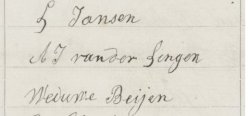 L Jansen
A J van der Lingen
Weduwe Beijen